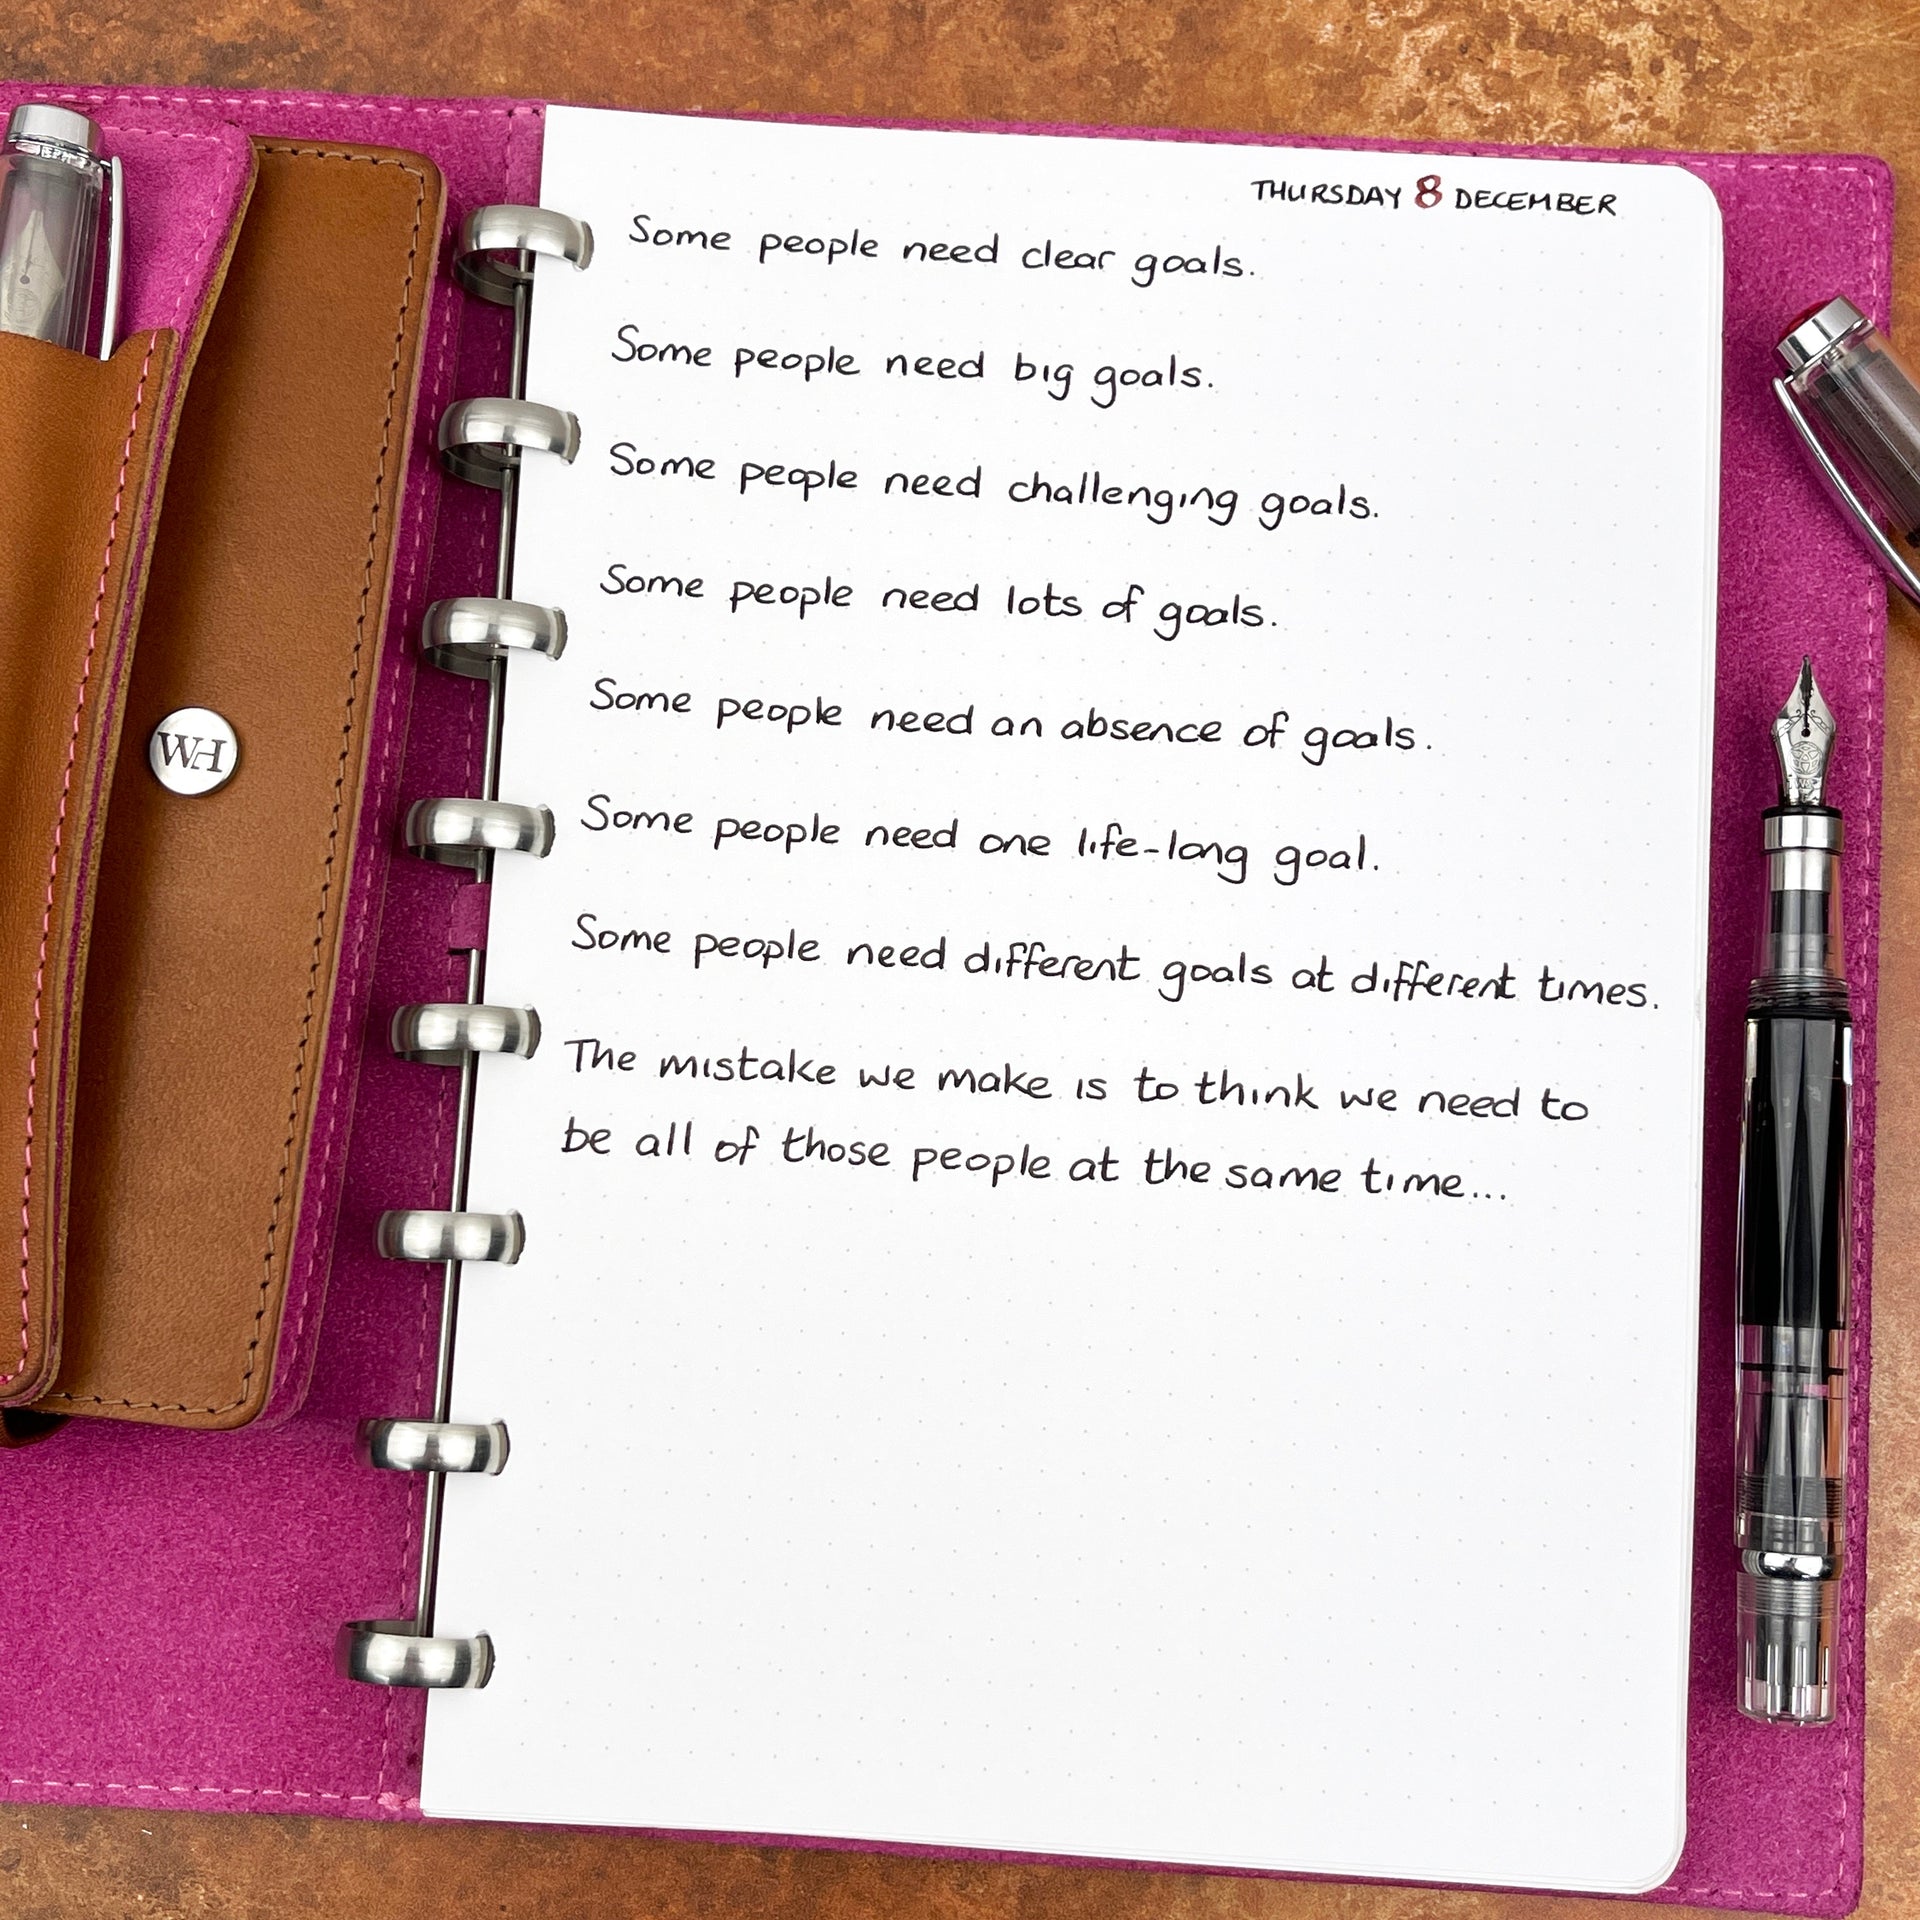 THURSDAY 8 DECEMBER
Some people need clear goals.
Some people need big goals.
Some people need challenging goals.
Some people need lots of goals.
Some people need an absence of goals.
Some people need one life-long goal.
Some people need different goals at different times.
The mistake we make is to think we need to
be all of those people at the same time...
WH